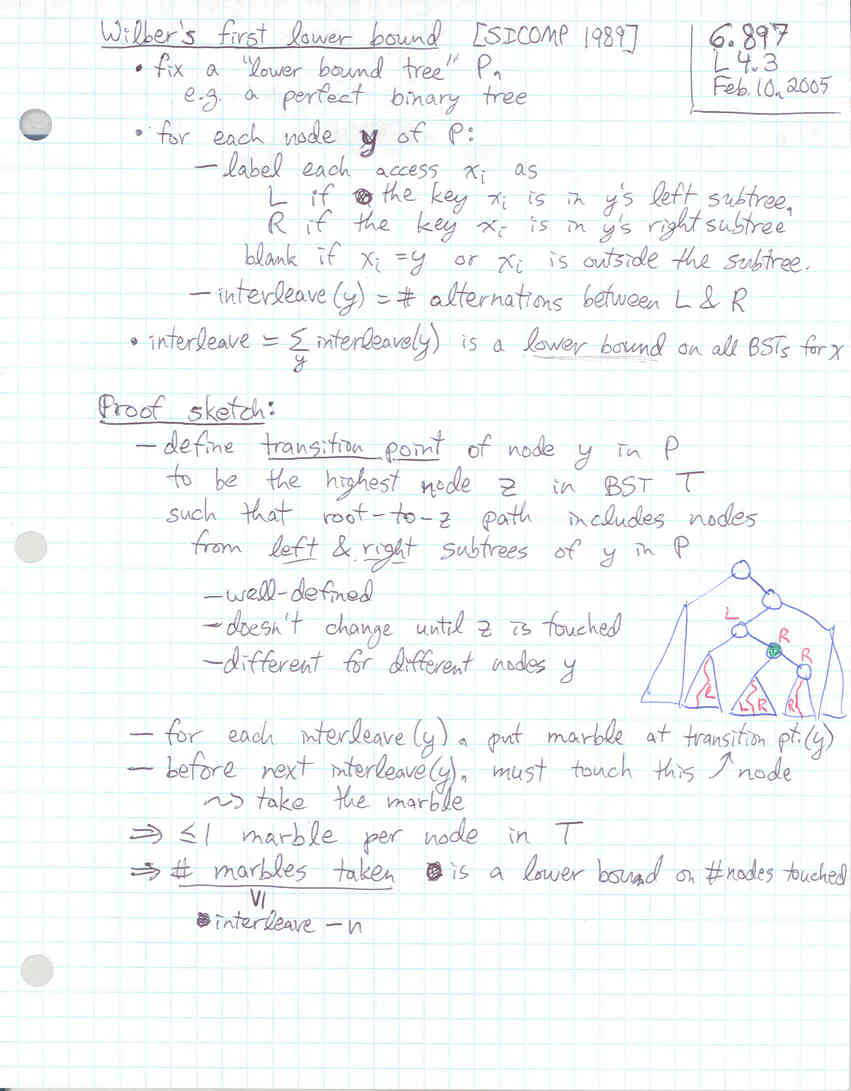 Wilber's first lower bound [SICOMP 1989]
6.897
L4.3
Feb. 10, 2005
• fix a "lower bound tree" P,
e.g. a perfect binary tree
• for each node y of P:
— label each access xᵢ as
L if the key xᵢ is in y's left subtree,
R if the key xᵢ is in y's right subtree
blank if xᵢ = y or xᵢ is outside the subtree.
— interleave(y) = # alternations between L & R
• interleave = Σ interleave(y) is a lower bound on all BSTs for x
y
Proof sketch:
— define transition point of node y in P
to be the highest node z in BST T
such that root-to-z path includes nodes
from left & right subtrees of y in P
— well-defined
— doesn't change until z is touched
— different for different nodes y
L
R
R
L
L R
R
— for each interleave(y), put marble at transition pt.(y)
— before next interleave(y), must touch this ↗ node
⇝ take the marble
⇒ ≤1 marble per node in T
⇒ # marbles taken is a lower bound on #nodes touched
VI
interleave - n